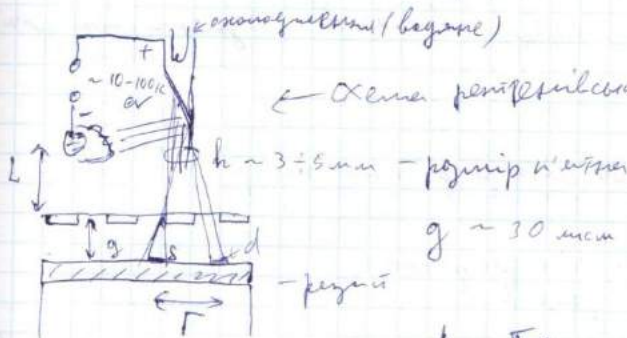 охолодження (водяне)
+
~ 10-100к
eV
-
← Схема рентгенівськ
h ~ 3÷5 мм - розмір п'ятна
L
g ~ 30 мкм
g
s
d
- резист
Г